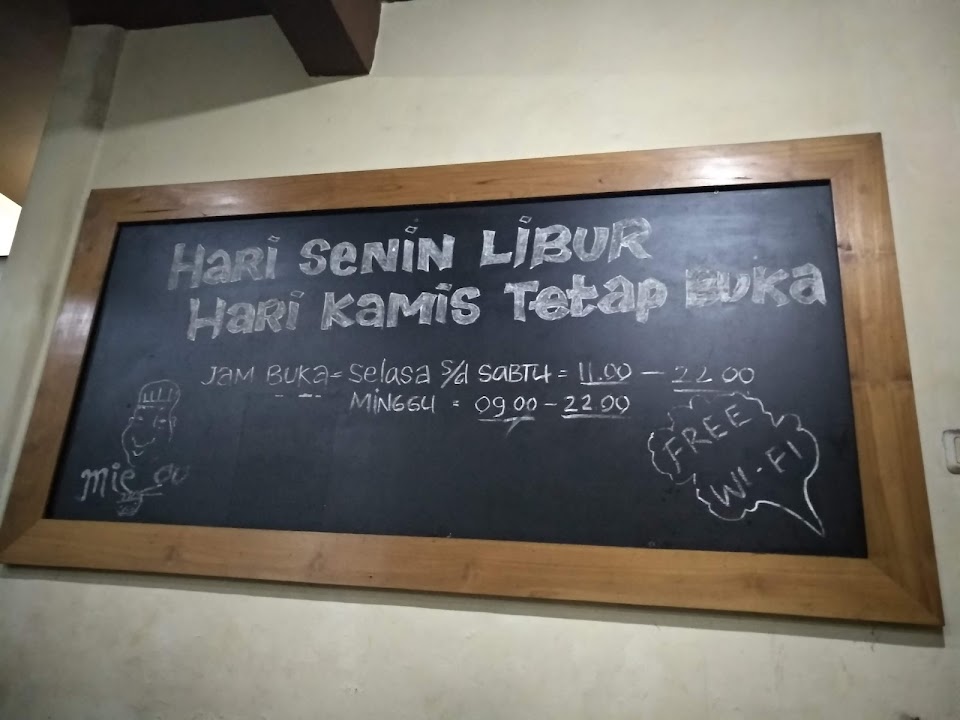 HARI SENIN LIBUR
HARI KAMIS TETAP BUKA
JAM BUKA = Selasa S/d SABTU = 11.00 - 22.00
MINGGU = 09.00 - 22.00
FREE
WI-FI
Mie